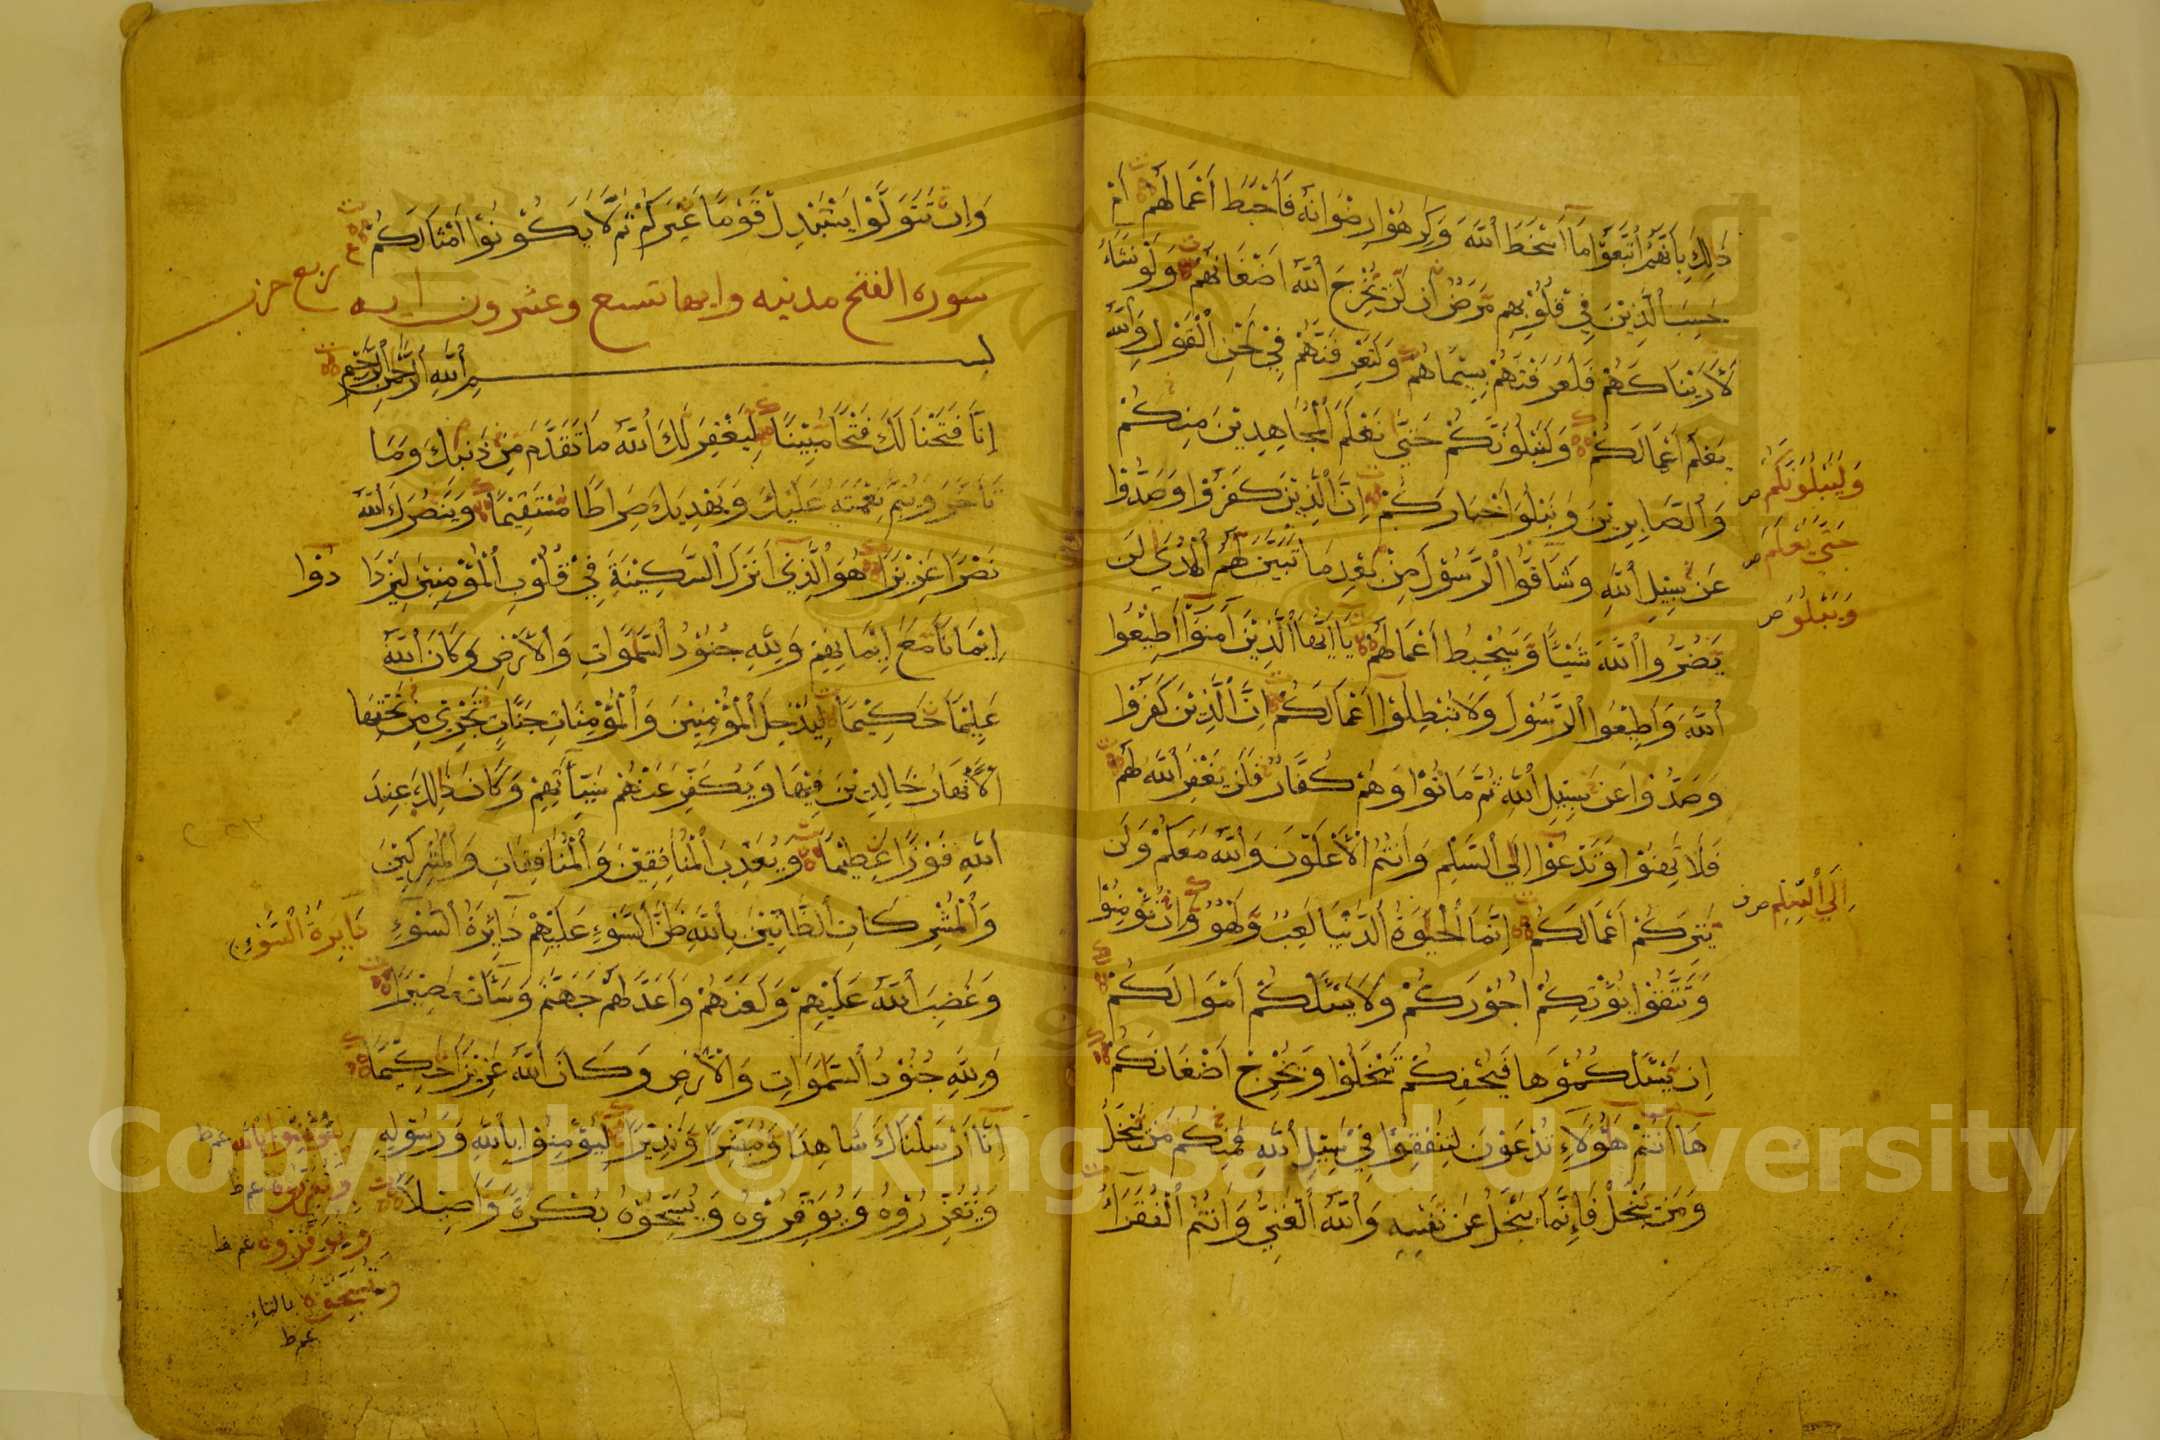 ذَالِكَ بِاَنَّهُمُ اُتَّبَعُوْا مَآ اَسْخَطَ اُللّٰهَ وَكَرِهُوْا رِضْوَانَهٗ فَاَحْبَطَ اَعْمَالَهُمْ اَمْ
حَسِبَ اُلَّذِيْنَ فِيْ قُلُوْبِهِمْ مَرَضٌ اَنْ لَنْ يُخْرِجَ اُللّٰهُ اَضْغَانَهُمْ وَلَوْ نَشَآءُ
لَاَرَيْنَاكَهُمْ فَلَعَرَفْتَهُمْ بِسِيْمَاهُمْ وَلَتَعْرِفَنَّهُمْ فِيْ لَحْنِ اْلْقَوْلِ وَاُللّٰهُ
يَعْلَمُ اَعْمَالَكُمْ وَلَنَبْلُوَنَّكُمْ حَتّٰى نَعْلَمَ اَلْمُجَاهِدِيْنَ مِنْكُمْ
وَاُلصَّابِرِيْنَ وَنَبْلُوَا اَخْبَارَكُمْ اِنَّ اُلَّذِيْنَ كَفَرُوْا وَصَدُّوْا
عَنْ سَبِيْلِ اُللّٰهِ وَشَاقُّوا اْلرَّسُوْلَ مِنْ بَعْدِ مَا تَبَيَّنَ لَهُمُ اْلْهُدٰى لَنْ
يَضُرُّوا اُللّٰهَ شَيْئًا وَسَيُحْبِطُ اَعْمَالَهُمْ يَآ اَيُّهَا اُلَّذِيْنَ اٰمَنُوْٓا اَطِيْعُوا
اُللّٰهَ وَاَطِيْعُوا اُلرَّسُوْلَ وَلَا تُبْطِلُوْٓا اَعْمَالَكُمْ اِنَّ اُلَّذِيْنَ كَفَرُوْا
وَصَدُّوْا عَنْ سَبِيْلِ اُللّٰهِ ثُمَّ مَاتُوْا وَهُمْ كُفَّارٌ فَلَنْ يَغْفِرَ اُللّٰهُ لَهُمْ
فَلَا تَهِنُوْا وَتَدْعُوْٓا اِلَى اُلسَّلْمِ وَاَنْتُمُ اْلْاَعْلَوْنَ وَاُللّٰهُ مَعَكُمْ وَلَنْ
يَتِرَكُمْ اَعْمَالَكُمْ اِنَّمَا اُلْحَيٰوةُ اُلدُّنْيَا لَعِبٌ وَلَهْوٌ وَاِنْ تُؤْمِنُوْا
وَتَتَّقُوْا يُؤْتِكُمْ اُجُوْرَكُمْ وَلَا يَسْئَلْكُمْ اَمْوَالَكُمْ
اِنْ يَسْئَلْكُمُوْهَا فَيُحْفِكُمْ تَبْخَلُوْا وَيُخْرِجْ اَضْغَانَكُمْ
هَآ اَنْتُمْ هٰٓؤُلَآءِ تُدْعَوْنَ لِتُنْفِقُوْا فِيْ سَبِيْلِ اُللّٰهِ فَمِنْكُمْ مَنْ يَبْخَلُ
وَمَنْ يَبْخَلْ فَاِنَّمَا يَبْخَلُ عَنْ نَفْسِهٖ وَاُللّٰهُ اُلْغَنِيُّ وَاَنْتُمُ اُلْفُقَرَآءُ
وَلَيَبْلُوَنَّكُمْ ص
حَتّٰى يَعْلَمَ ص
وَيَبْلُوَ ص
اِلَى اُلسِّلْمِ ص ف
وَاِنْ تَتَوَلَّوْا يَسْتَبْدِلْ قَوْمًا غَيْرَكُمْ ثُمَّ لَا يَكُوْنُوْٓا اَمْثَالَكُمْ
سورة الفتح مدنيه وايها تسع وعشرون ايه ربع حزب
بسم اُللّٰهِ اُلرَّحْمٰنِ اُلرَّحِيْمِ
اِنَّا فَتَحْنَا لَكَ فَتْحًا مُبِيْنًا لِيَغْفِرَ لَكَ اُللّٰهُ مَا تَقَدَّمَ مِنْ ذَنْبِكَ وَمَا
تَاَخَّرَ وَيُتِمَّ نِعْمَتَهٗ عَلَيْكَ وَيَهْدِيَكَ صِرَاطًا مُسْتَقِيْمًا وَيَنْصُرَكَ اُللّٰهُ
نَصْرًا عَزِيْزًا هُوَ اُلَّذِيْٓ اَنْزَلَ اُلسَّكِيْنَةَ فِيْ قُلُوْبِ اُلْمُؤْمِنِيْنَ لِيَزْدَا دُوْٓا
اِيْمَانًا مَعَ اِيْمَانِهِمْ وَلِلّٰهِ جُنُوْدُ اُلسَّمٰوَاتِ وَاْلْاَرْضِ وَكَانَ اُللّٰهُ
عَلِيْمًا حَكِيْمًا لِيُدْخِلَ اُلْمُؤْمِنِيْنَ وَاُلْمُؤْمِنَاتِ جَنَّاتٍ تَجْرِيْ مِنْ تَحْتِهَا
اْلْاَنْهَارُ خَالِدِيْنَ فِيْهَا وَيُكَفِّرَ عَنْهُمْ سَيِّاٰتِهِمْ وَكَانَ ذٰلِكَ عِنْدَ
اُللّٰهِ فَوْزًا عَظِيْمًا وَيُعَذِّبَ اُلْمُنَافِقِيْنَ وَاُلْمُنَافِقَاتِ وَاُلْمُشْرِكِيْنَ
وَاُلْمُشْرِكَاتِ اُلظَّانِّيْنَ بِاُللّٰهِ ظَنَّ اُلسَّوْءِ عَلَيْهِمْ دَآئِرَةُ اُلسَّوْءِ
وَغَضِبَ اُللّٰهُ عَلَيْهِمْ وَلَعَنَهُمْ وَاَعَدَّ لَهُمْ جَهَنَّمَ وَسَآءَتْ مَصِيْرًا
وَلِلّٰهِ جُنُوْدُ اُلسَّمٰوَاتِ وَاْلْاَرْضِ وَكَانَ اُللّٰهُ عَزِيْزًا حَكِيْمًا
اِنَّآ اَرْسَلْنَاكَ شَاهِدًا وَمُبَشِّرًا وَنَذِيْرًا لِيُؤْمِنُوْا بِاُللّٰهِ وَرَسُوْلِهٖ
وَتُعَزِّرُوْهُ وَيُوَقِّرُوْهُ وَيُسَبِّحُوْهُ بُكْرَةً وَاَصِيْلًا
دَآيِرَةُ اُلسُّوْءِ
لِتُؤْمِنُوْا بِاللّٰهِ عم ط
وتعزروه عم ط
وتوقروه عم ط
وتسبحوه بالتاءِ
عم ط
Copyright © King Saud University
1957